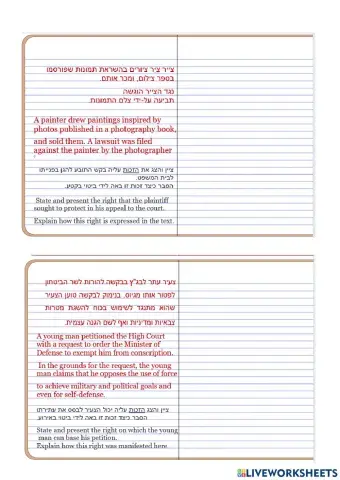 צייר ציר ציורים בהשראת תמונות שפורסמו
בספר צילום, ומכר אותם.
נגד הצייר הוגשה
תביעה על-ידי צלם התמונות.
A painter drew paintings inspired by
photos published in a photography book,
and sold them. A lawsuit was filed
against the painter by the photographer
ציין והצג את הזכות עליה בקש התובע להגן בפנייתו
לבית המשפט.
הסבר כיצד זכות זו באה לידי ביטוי בקטע.
State and present the right that the plaintiff
sought to protect in his appeal to the court.
Explain how this right is expressed in the text.
צעיר עתר לבג"ץ בבקשה להורות לשר הביטחון
לפטור אותו מגיוס. בנימוק לבקשה טוען הצעיר
שהוא מתנגד לשימוש בכוח להשגת מטרות
צבאיות ומדיניות ואף לשם הגנה עצמית.
A young man petitioned the High Court
with a request to order the Minister of
Defense to exempt him from conscription.
In the grounds for the request, the young
man claims that he opposes the use of force
to achieve military and political goals and
even for self-defense.
ציין והצג הזכות עליה יכול הצעיר לבסס את עתירתו
הסבר כיצד זכות זו באה לידי ביטוי באירוע.
State and present the right on which the young
man can base his petition.
Explain how this right was manifested here
LIVEWORKSHEETS